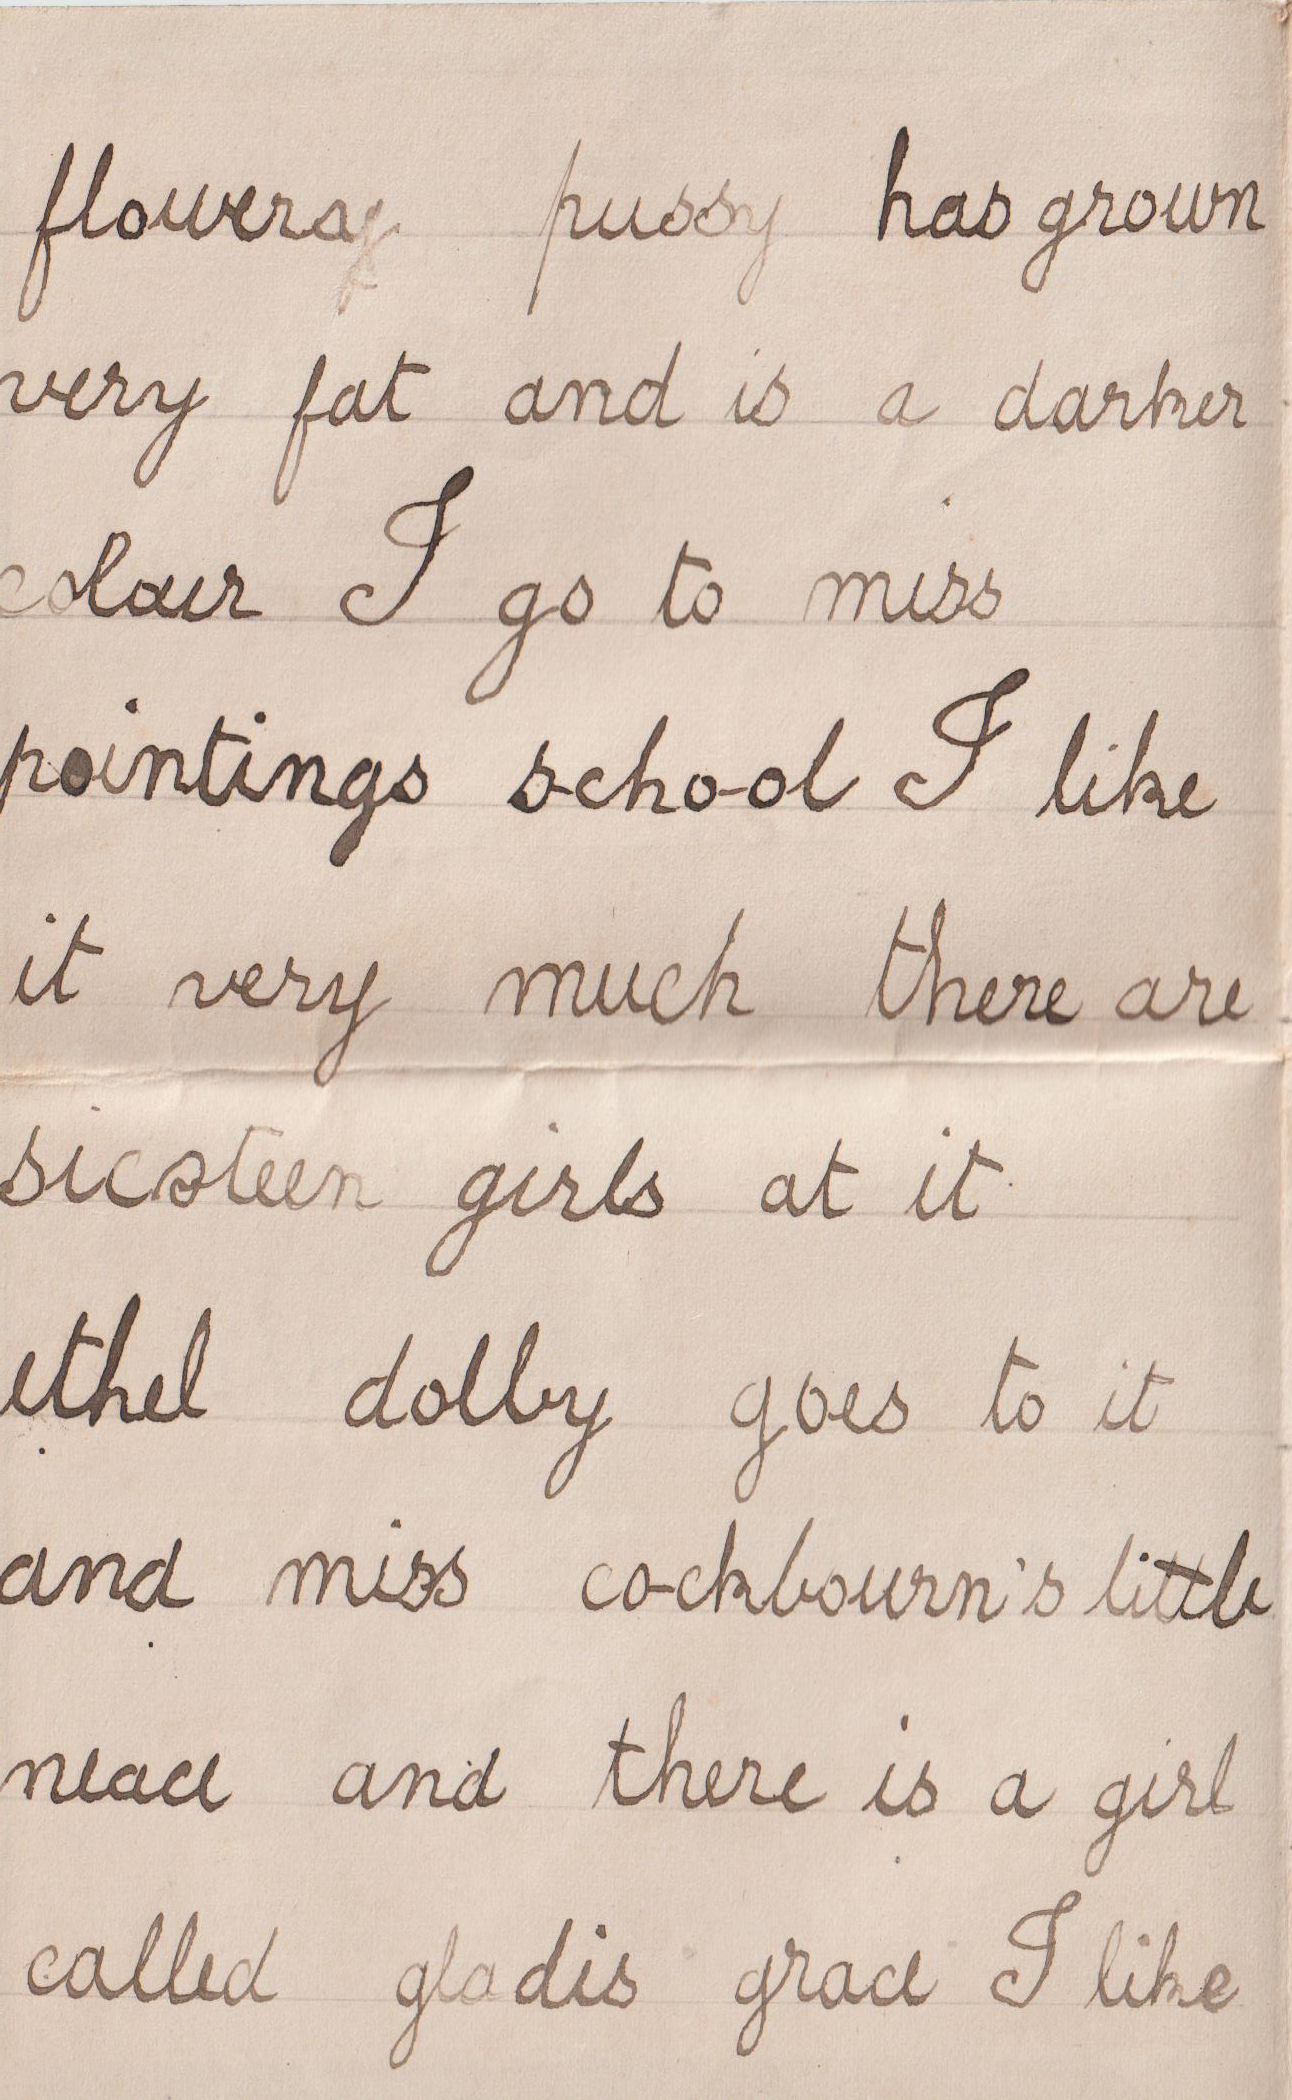 flowers pussy has grown
very fat and is a darker
colour I go to miss
pointings school I like
it very much there are
sicsteen girls at it
ethel dolby goes to it
and miss cockbourn's little
neace and there is a girl
called gladis grace I like